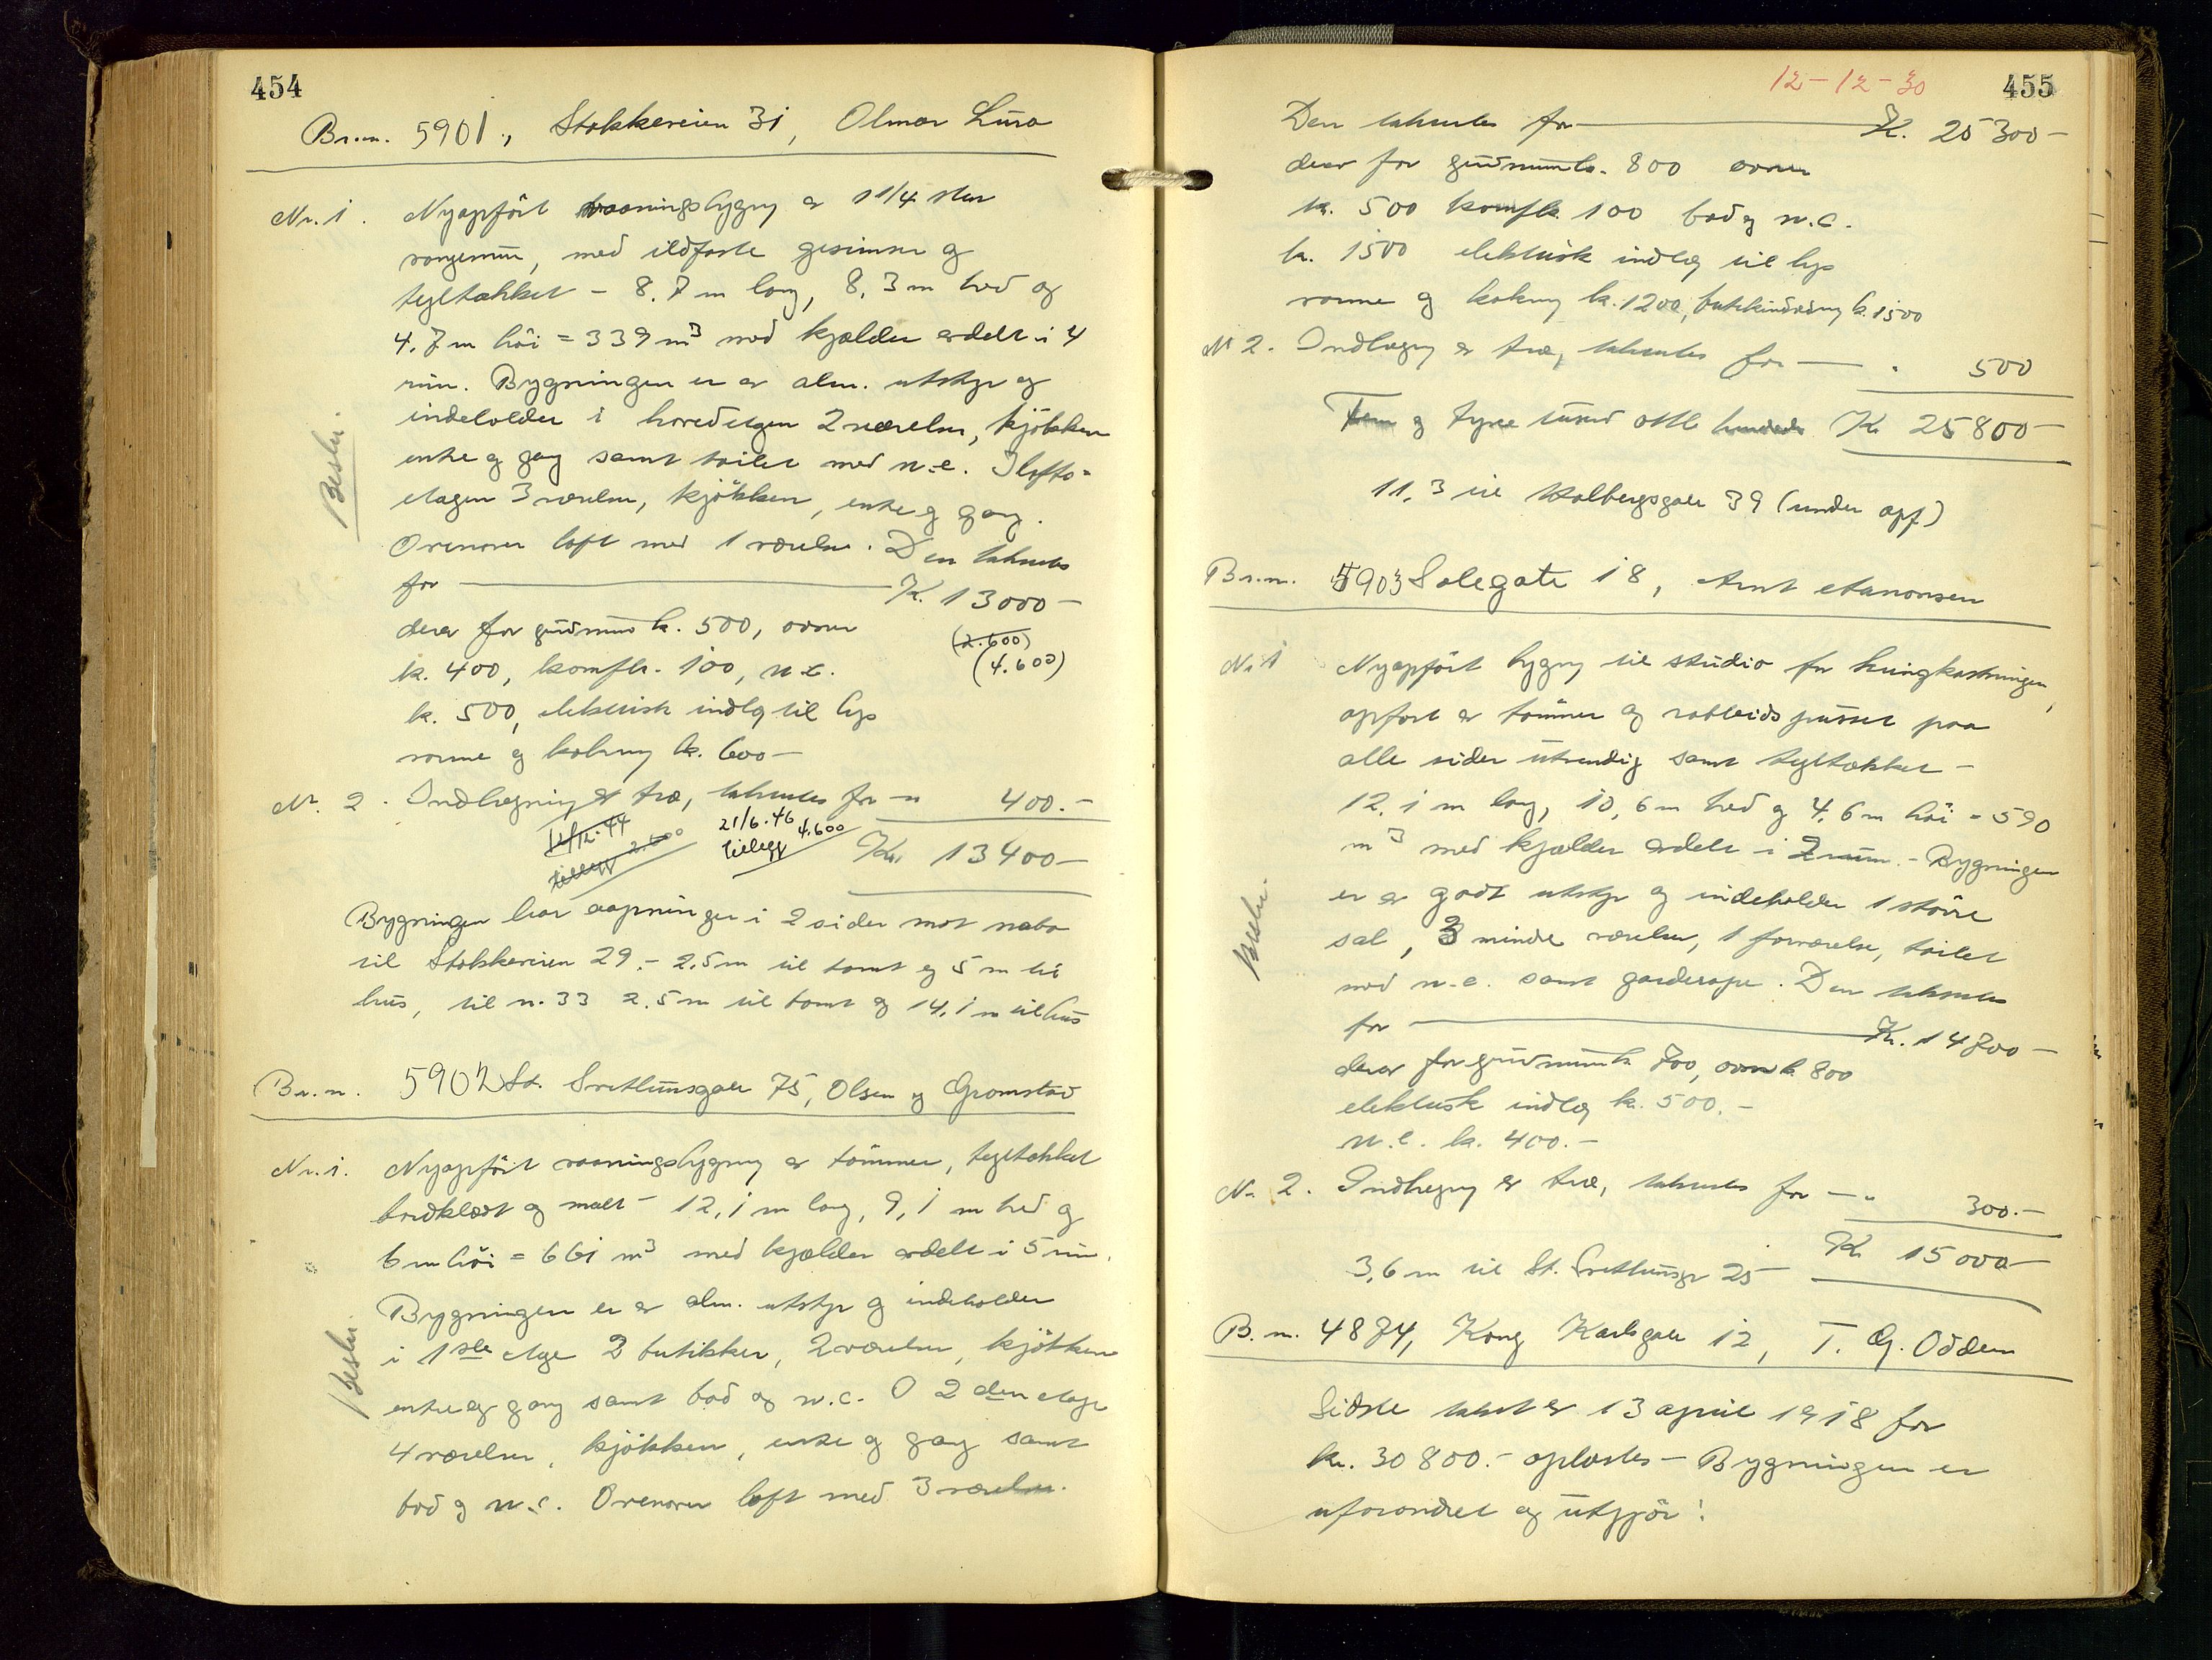 454
Br.n. 5901, Stokkeveien 31, Olmar Lura
Nr. 1. Nyopført vaaningsbygng av 1 1/4 sten
vangemur, med ildfaste gesimser og
tegltækket - 8.7 m lang, 8,3 m bred og
4.7 m høi = 339 m³ med kjælder avdelt i 4
rum. Bygningen er av alm. utstyr og
indeholder i hovedetagen 2 værelser, kjøkken
entre og gang samt toilet med w.c. I lofts-
etagen 3 værelser, kjøkken, entre og gang.
Ovenover loft med 1 værelse. Den takseres
for K. 13000-
derav for grundmur k. 500, ovner
(2.600)
k. 400, komfhr. 100, w.c.
(4.600)
k. 500, elektrisk indlæg til lys
varme og kokning k. 600-
Nr. 2. Indhegning av træ, takseres for - " 400.-
12/12.44 tillegg 2.600
21/6.46 tillegg 4.600
Kr. 13400-
Bygningen har aapninger i 2 sider mot nabo
til Stokkeveien 29.- 2.5m til tomt og 5 m til
hus, til n. 33 2.5m til tomt og 14,1 m til hus
Besikt.
Br.n. 5902 St. Svithunsgate 75, Olsen og Gromstad
Nr. 1. Nyopført vaaningsbygng av tømmer, tegltækket
bordklædt og malt - 12,1 m lang, 9,1 m bred og
6 m høi = 661 m³ med kjælder avdelt i 5 rum.
Bygningen er av alm. utstyr og indeholder
i 1ste etage 2 butikker, 2 værelser, kjøkken
entre og gang samt bod og w.c. I 2 den etage
4 værelser, kjøkken, entre og gang samt
bod og w.c. Ovenover loft med 3 værelser.
Besikt.
12-12-30
455
Den takseres for K. 25300-
derav for grundmur k. 800 ovner
k. 500 komfk. 100 bod og w.c.
k. 1500 elektrisk indlæg til lys
varme og kokning k. 1200, butikkindredning k. 1500
Nr 2. Indhegng av træ, takseres for - " 500
Fem og tyve tusend otte hundrede K 25800-
11,3 til Holbergsgate 39 (under opf.)
Br.n. 5903 Solegate 18, Arnt Aanonsen
Nr. 1 Nyopført bygng til studio for kringkastningen,
opført av tømmer og rabbitspusset paa
alle sider utvendig samt tegltækket -
12,1 m lang, 10,6m bred og 4,6m høi = 590
m³ med kjælder avdelt i 2 rum. - Bygningen
er av godt utstyr og indeholder 1 større
sal, 3 mindre værelser, 1 forværelse, toilet
med w.c. samt garderope. Den takseres
for K. 14700-
derav for grundmur k. 700, ovner k. 800
elektrisk indlæg k. 500.-
w.c. k. 400.-
Nr. 2. Indhegng av træ, takseres for - " 300.-
K 15000-
3,6 m til St. Svithunsgt 25
Besikt.
B.n. 4874, Kong Karlsgate 12, T. G. Oddem
Sidste takst av 13 april 1918 for
kr. 30800.- oplæstes - Bygningen er
uforandret og utgjør: